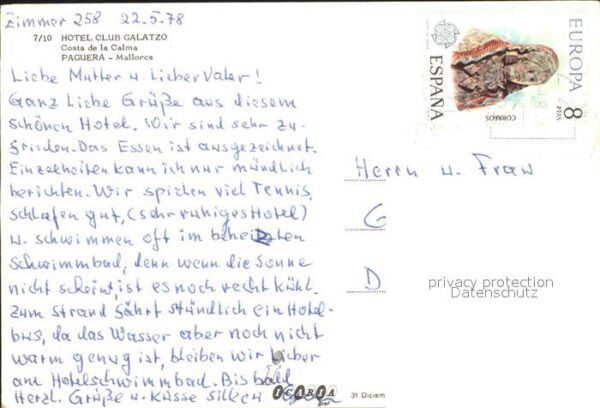 Zimmer 258 22.5.78
7/10 HOTEL CLUB GALATZO
Costa de la Calma
PAGUERA - Mallorca
Liebe Mutter u. Lieber Vater!
Ganz Liebe Grüße aus diesem
schönen Hotel. Wir sind sehr zu-
frieden. Das Essen ist ausgezeichnet.
Einzelheiten kann ich nur mündlich
berichten. Wir spielen viel Tennis,
schlafen gut, (sehr ruhiges Hotel)
u. schwimmen oft im beheizten
Schwimmbad, denn wenn die Sonne
nicht scheint, ist es noch recht kühl.
Zum Strand fährt stündlich ein Hotel-
bus, da das Wasser aber noch nicht
warm genug ist, bleiben wir lieber
am Hotelschwimmbad. Bis bald
Herzl. Grüße u. Küsse
ICARIA
31 Diciem
CEPT
ESPAÑA
EUROPA
8
PTAS
CORREOS
Herrn u. Frau
G
D
privacy protection
Datenschutz